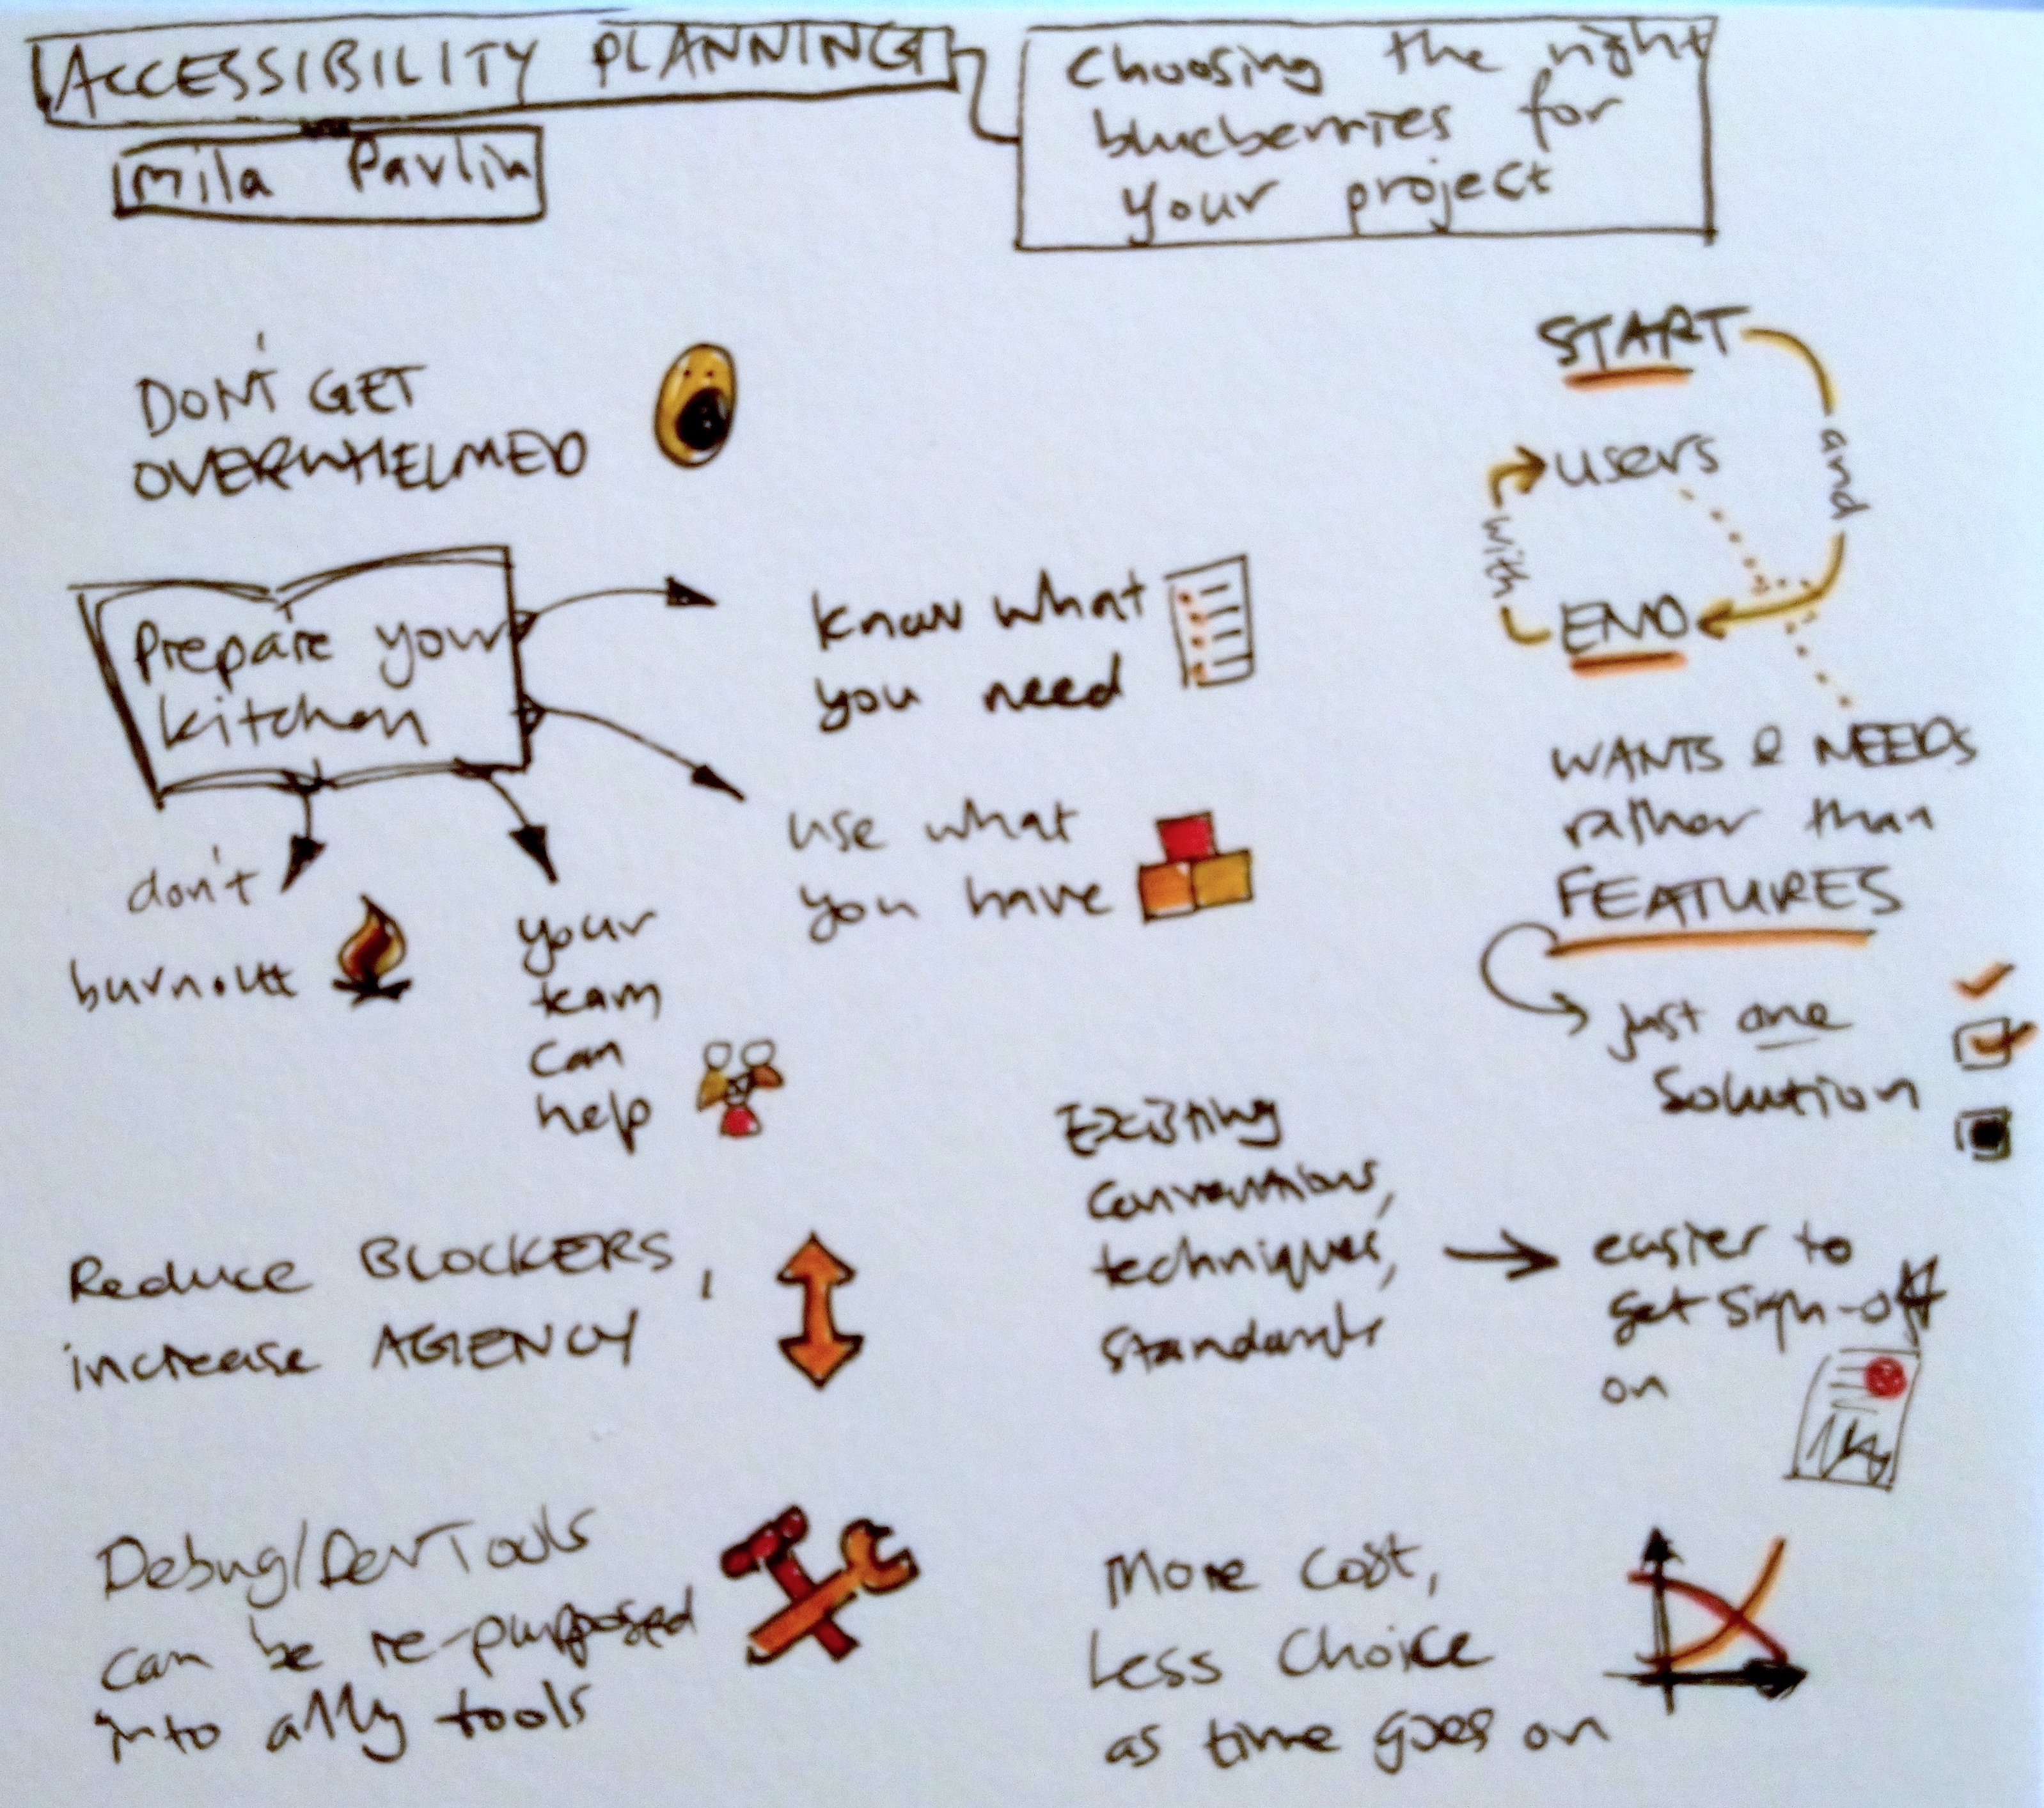 ACCESSIBILITY PLANNING
Mila Pavlin
Choosing the right
blueberries for
your project
DON'T GET
OVERWHELMED
Prepare your
kitchen
know what
you need
use what
you have
don't
burnout
your
team
can
help
START
and
users
with
END
WANTS & NEEDS
rather than
FEATURES
just one
Solution
Reduce BLOCKERS,
increase AGENCY
Existing
conventions,
techniques,
standards
easier to
get sign-off
on
Debug/DevTools
can be re-purposed
into a11y tools
More cost,
Less Choice
as time goes on